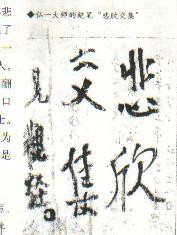 ◆弘一大师的绝笔“悲欣交集”
悲欣
交集
見觀經。
悲
了
一
人
酬
口
上
为
是